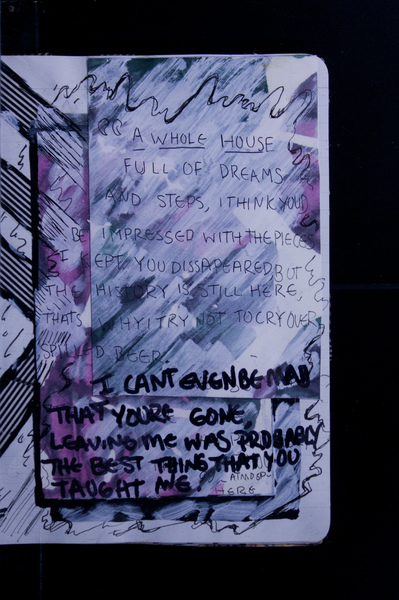 "A WHOLE HOUSE
FULL OF DREAMS
AND STEPS, I THINK YOUD
BE IMPRESSED WITH THE PIECES
I KEPT. YOU DISSAPEARED BUT
THE HISTORY IS STILL HERE,
THATS WHY I TRY NOT TO CRY OVER
SPILLED BEER.
I CANT EVEN BE MAD
THAT YOURE GONE
LEAVING ME WAS PROBABLY
THE BEST THING THAT YOU
TAUGHT ME.
HERE